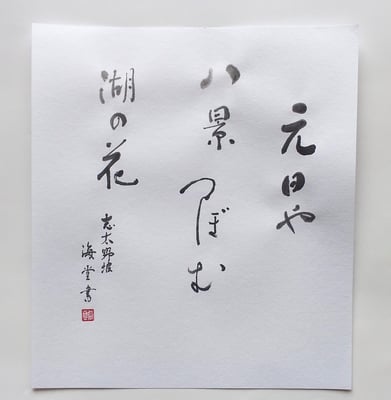 元日や
八景つぼむ
湖の花
志太野坡
海堂書